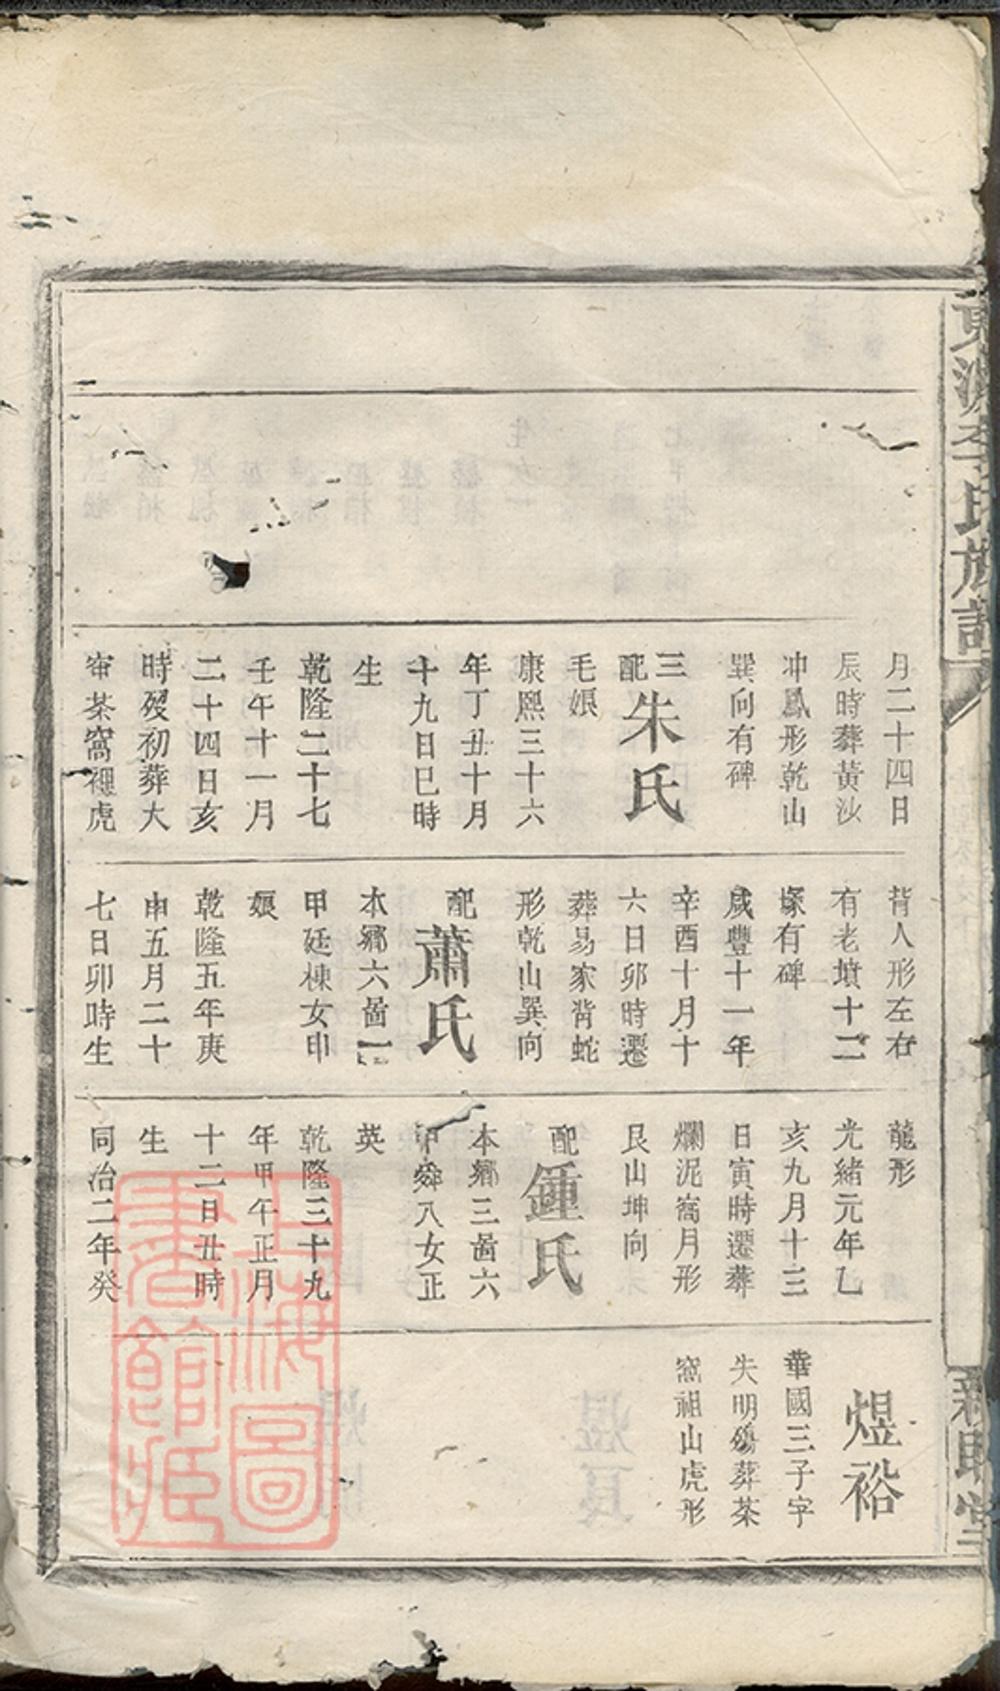 李氏族譜
月二十四日
辰時葬黃沙
冲鳳形乾山
巽向有碑
三
配朱氏
毛娘
康熙三十六
年丁丑十月
十九日巳時
生
乾隆二十七
壬午十一月
二十四日亥
時歿初葬大
窜茶窩裡虎
背人形左右
有老墳十二
塚有碑
咸豐十一年
辛酉十月十
六日卯時遷
葬易家背蛇
形乾山巽向
配蕭氏
本鄉六啚一
甲廷棟女申
娘
乾隆五年庚
申五月二十
七日卯時生
龍形
光緒元年乙
亥九月十三
日寅時遷葬
爛泥窩月形
艮山坤向
配鍾氏
本鄉三啚六
甲舜八女正
英
乾隆三十九
年甲午正月
十二日丑時
生
同治二年癸
煜裕
華國三子字
失明殤葬茶
窩祖山虎形
上海圖
書館藏